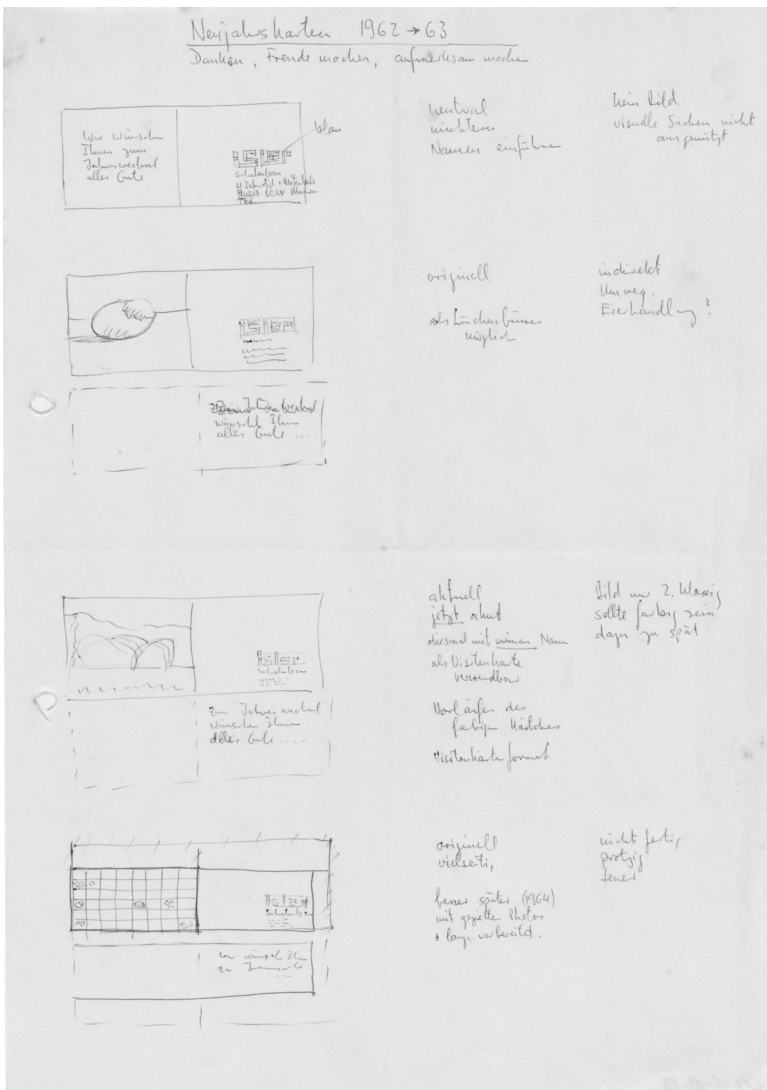 Neujahrskarten 1962 → 63
Danken, Freude machen, aufmerksam machen
Wir wünschen
Ihnen zum
Jahreswechsel
alles Gute
blau
neutral
nüchtern
Namen einführen
kein Bild
visuelle Sachen nicht
ausgenützt
originell
möglich
indirekt
Umweg.
Eierhandlung?
wünscht Ihnen
alles Gute ....
aktuell
jetzt
diesmal mit meinem Namen
als Visitenkarte
verwendbar
Vorläufer des
farbigen Kärtchens
Visitenkartenformat
Bild nur 2. klassig
sollte farbig sein
dazu zu spät
Zum Jahreswechsel
wünschen Ihnen
alles Gute ....
originell
vielseitig
besser später (1964)
mit gezielten Photos
+ lang vorbereitet.
nicht fertig,
protzig
teuer